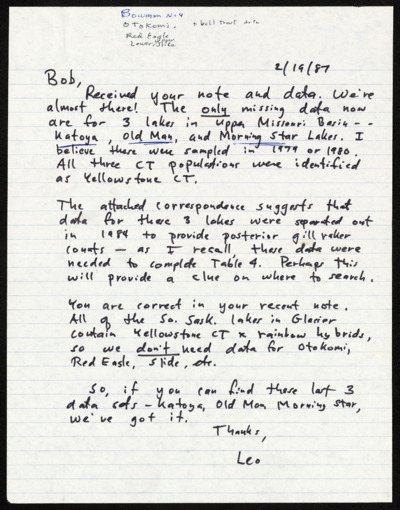 Bowman N=4
Otokomi + bull trout data
Red Eagle
Lower Slide
2/19/87
Bob,
Received your note and data. We're
almost there! The only missing data now
are for 3 lakes in Uppa Missouri Basin --
Katoya, Old Man, and Morning Star Lakes. I
believe these were sampled in 1979 or 1980.
All three CT populations were identified
as Yellowstone CT.
The attached correspondence suggests that
data for these 3 lakes were separated out
in 1984 to provide posterior gill raker
counts — as I recall these data were
needed to complete Table 4. Perhaps this
will provide a clue on where to search.
You are correct in your recent note.
All of the So. Sask. lakes in Glacier
contain Yellowstone CT x rainbow hybrids,
so we don't need data for Otokomi,
Red Eagle, Slide, etc.
So, if you can find these last 3
data sets - Katoya, Old Man, Morning Star,
we've got it.
Thanks,
Leo